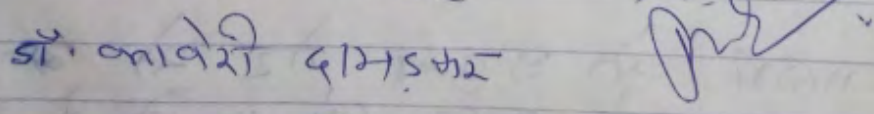 डॉ. कावेरी दाभडकर